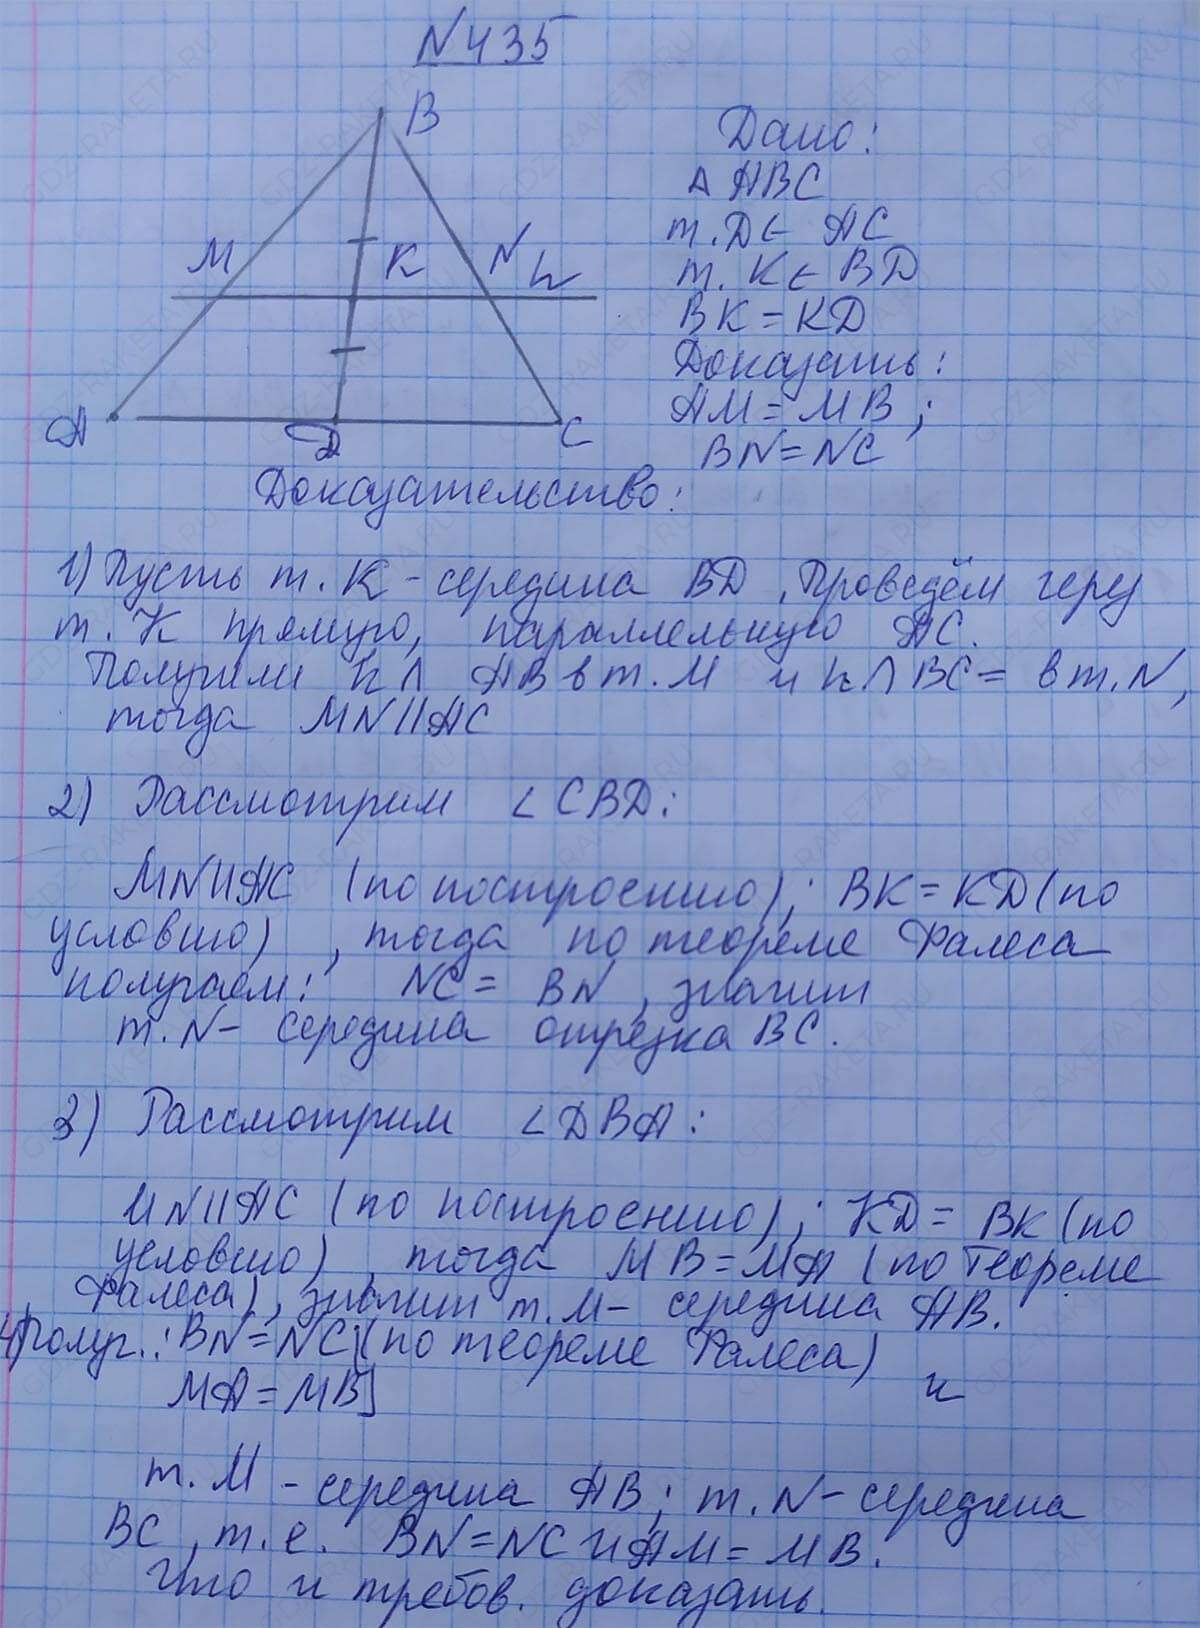 N 435
B
M
K
N
h
A
D
C
Дано:
Δ ABC
т. D ∈ AC
т. K ∈ BD
BK = KD
Доказать:
AM = MB;
BN = NC
Доказательство:
1) Пусть т. K - середина BD. Проведём через
т. K прямую, параллельную AC.
Получили h ∩ AB в т. M и h ∩ BC = в т. N,
тогда MN || AC
2) Рассмотрим ∠CBD:
MN || AC (по построению); BK = KD (по
условию), тогда по теореме Фалеса
получаем: NC = BN, значит
т. N - середина отрезка BC.
3) Рассмотрим ∠DBA:
MN || AC (по построению); KD = BK (по
условию), тогда MB = MA (по теореме
Фалеса), значит т. M - середина AB.
4) Получ.: BN = NC] (по теореме Фалеса)
MA = MB] и
т. M - середина AB; т. N - середина
BC, т.е. BN = NC и AM = MB.
Что и требов. доказать.
GDZ-RAKETA.RU